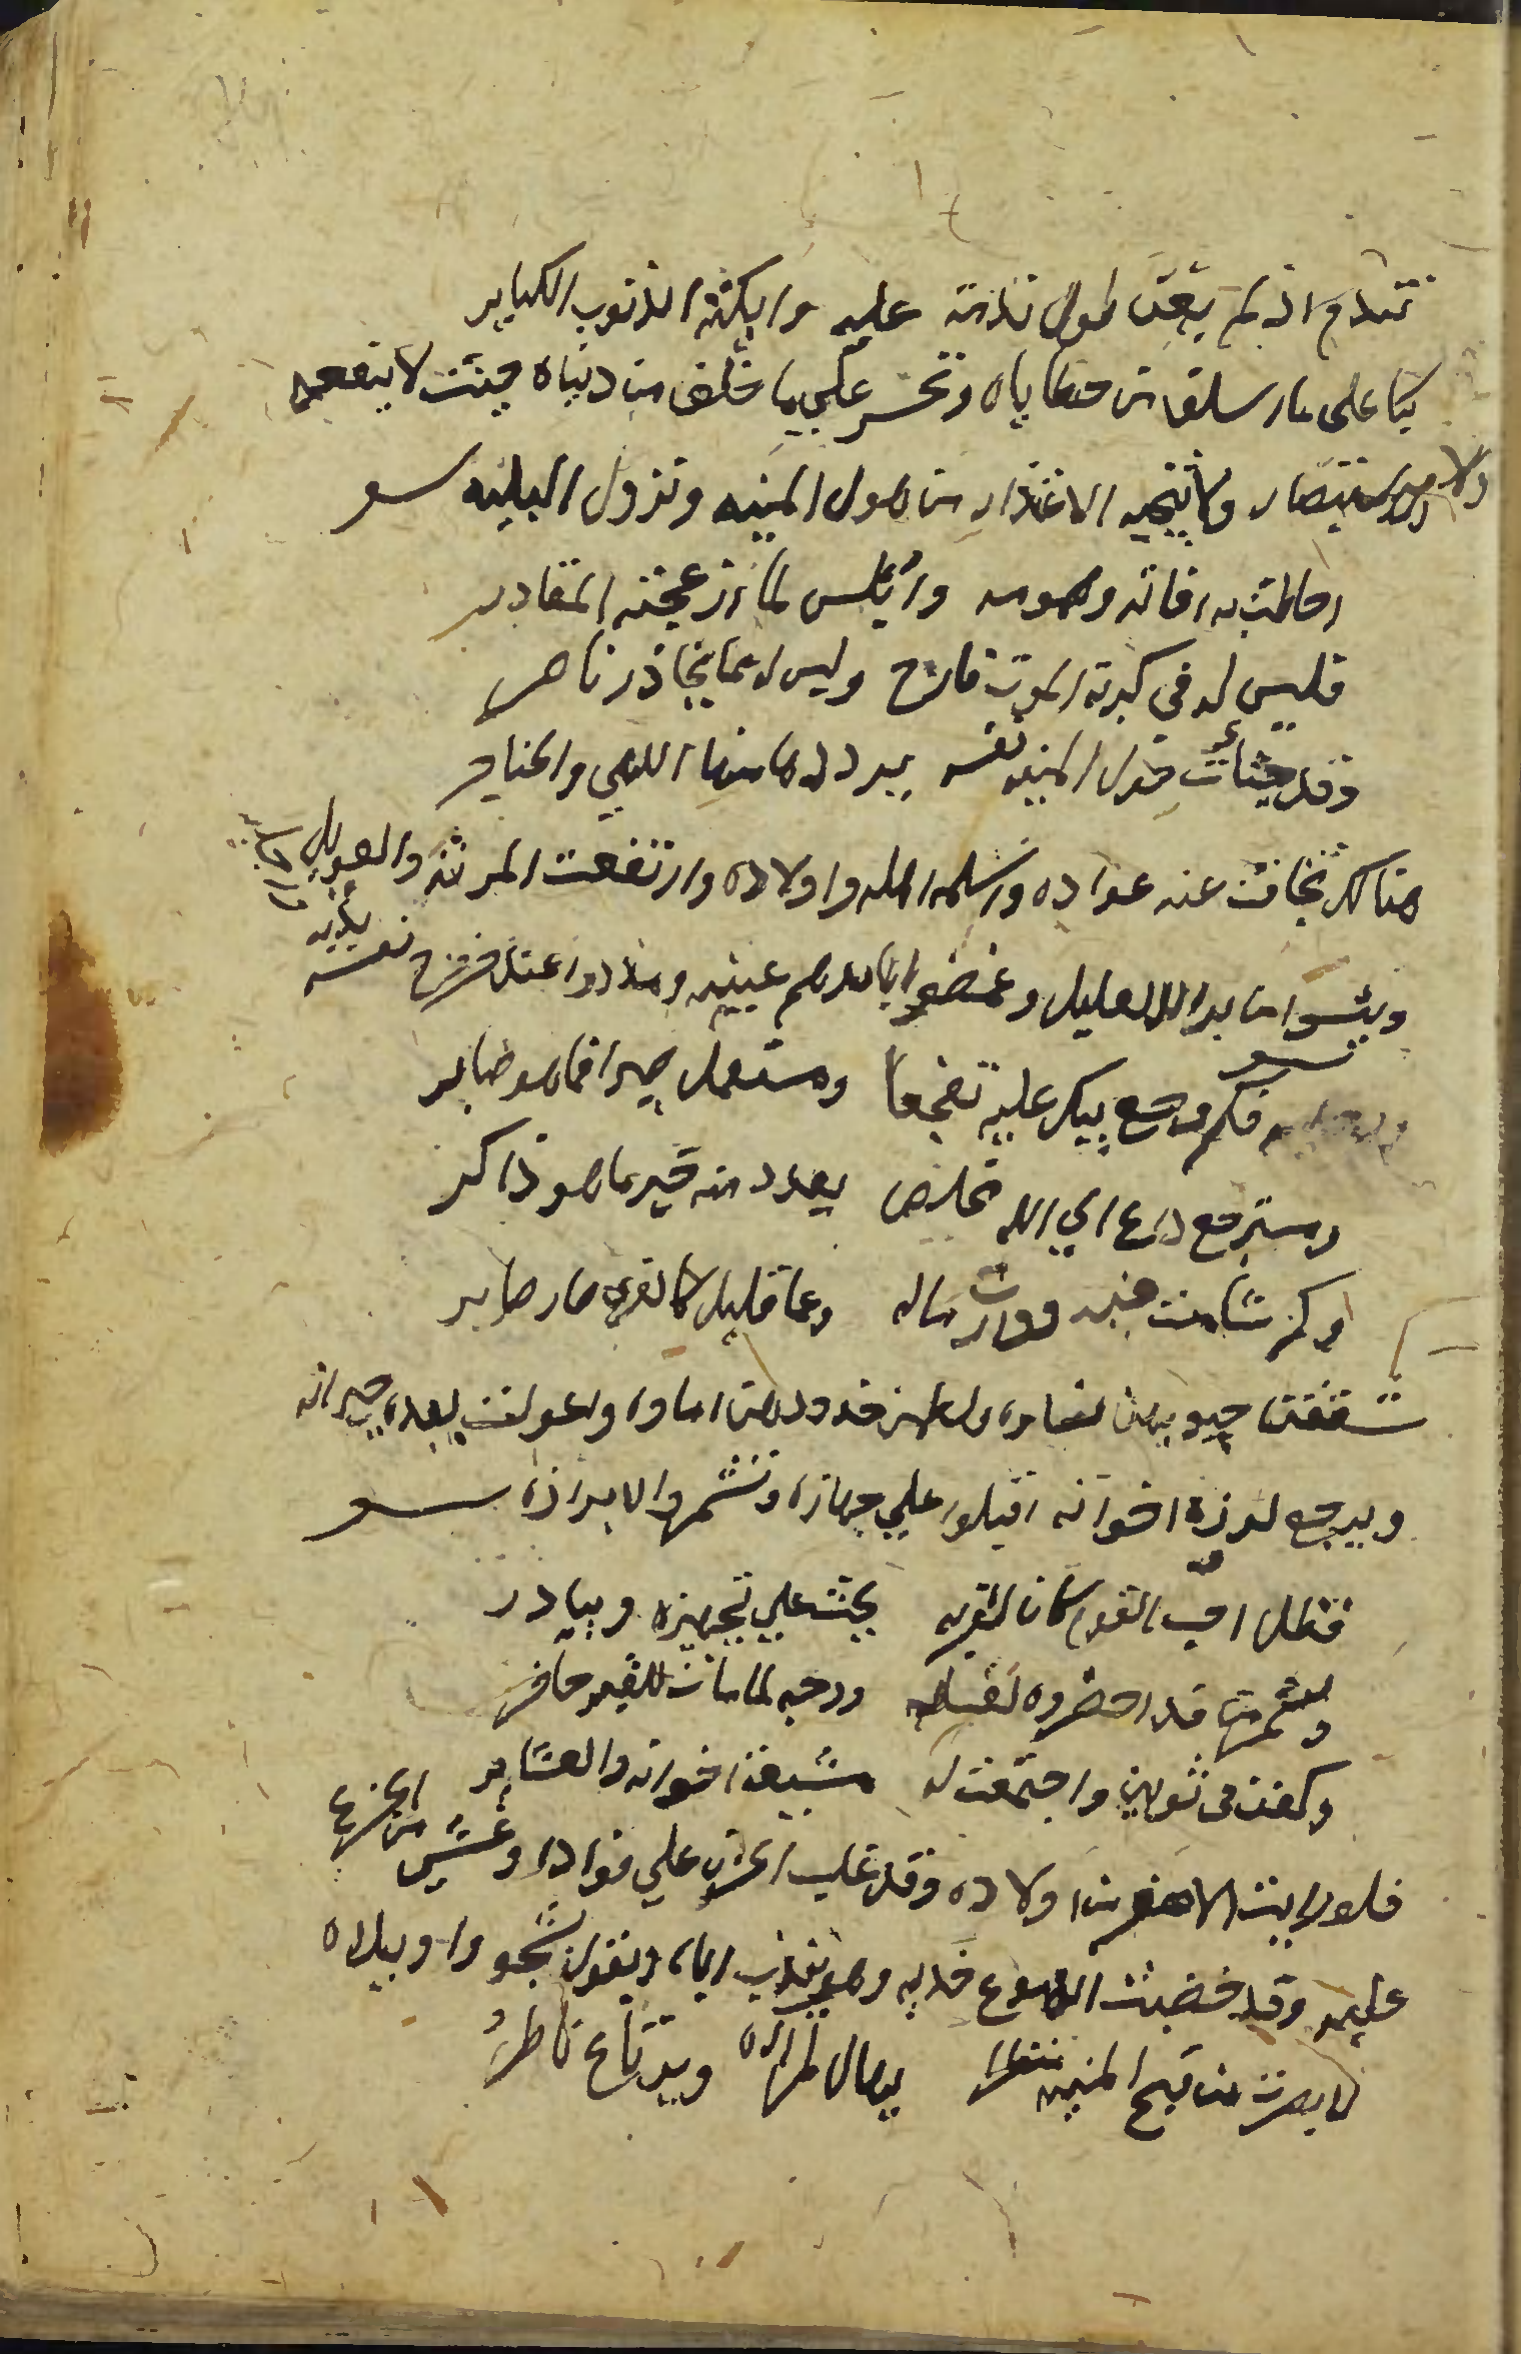 تندم اذ لم يغن طول ندامة عليه وابكته الذنوب الكباير
بكا على ما سلف من خطاياه وتحسر علي ما خلف من دنياه حيث لا ينفعه
الاستعبار ولا ينجيه الاعتذار من هول المنيه ونزول البليه
احاطت به افاته وهمومه وابلس لما ازعجته المقادير
فليس له في كربة الموت فارج وليس له مما يحاذر ناصر
وقد جشأت خوف المنيه نفسه يرددها منها اللهي والحناجر
هنالك خف عنه عواده واسلمه اهله واولاده وارتفعت المرنة والعويل
ويئسوا من برا العليل وغمضوا بايديهم عينيه ومدوا عند خروج نفسه
يديه ورجليه
فكم موجع يبكي عليه تفجعا ومستعمل صبرا فما هو صابر
ومسترجع داع الي الله مخلص يعدد منه خير ما هو ذاكر
وكم شامت منه وفاته وعما قليل كالذي صار صاير
شققت جيوبها نساوه ولطمن خدودهن اماوه واعولت لبعده جيرانه
وتوجع لرزيه اخوانه اقبلوا علي جهازه وتشمروا لابرازه
فظل احب القوم كان لقربه يحث علي تجهيزه ويبادر
وشمر من قد احضروه لغسله ووجه لما مات للقبر حافر
وكفن في ثوبين واجتمعت له مشيعة اخوانه والعشاير
فلو رايت الاصغر من اولاده وقد غلب الحزن علي فواده وغشي من الجزع
عليه وقد خضبت الدموع خديه وهو يندب اباه ويقول بشجو واويلاه
لابصرت من قبح المنيه منظرا يهال لمراه ويرتاع ناظر